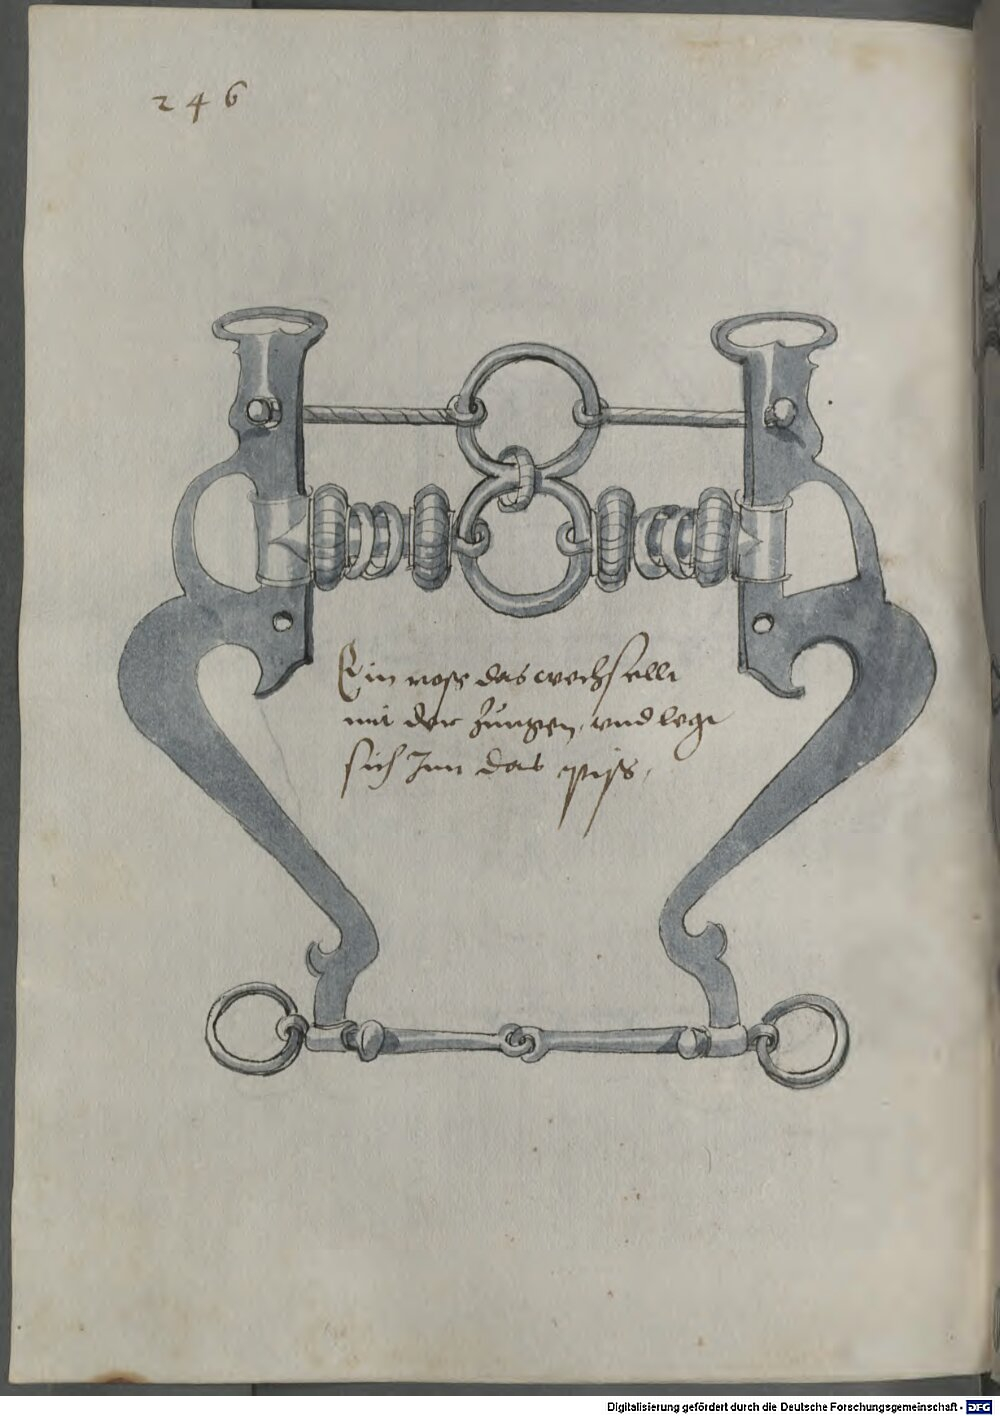 246
Ein ross das wechselt
mit der Zungen, vnd legt
sich Inn das piss,
Digitalisierung gefördert durch die Deutsche Forschungsgemeinschaft - DFG